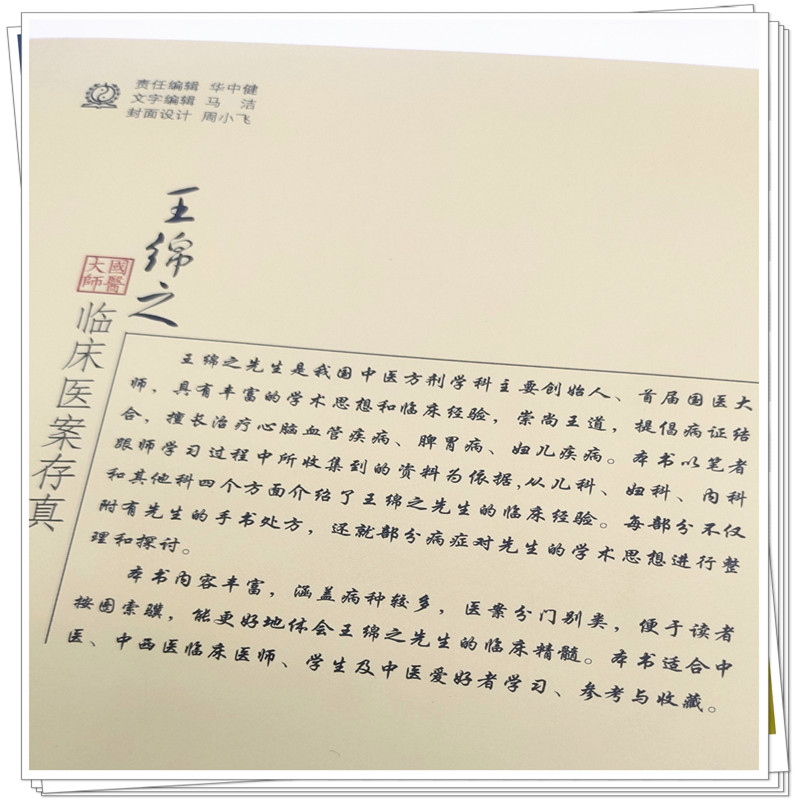 责任编辑 华中健
文字编辑 马 洁
封面设计 周小飞
王绵之
國醫大師
临床医案存真
王绵之先生是我国中医方剂学科主要创始人、首届国医大
师,具有丰富的学术思想和临床经验,崇尚王道,提倡病证结
合,擅长治疗心脑血管疾病、脾胃病、妇儿疾病。本书以笔者
跟师学习过程中所收集到的资料为依据,从儿科、妇科、内科
和其他科四个方面介绍了王绵之先生的临床经验。每部分不仅
附有先生的手书处方,还就部分病症对先生的学术思想进行整
理和探讨。
本书内容丰富,涵盖病种较多,医案分门别类,便于读者
按图索骥,能更好地体会王绵之先生的临床精髓。本书适合中
医、中西医临床医师、学生及中医爱好者学习、参考与收藏。